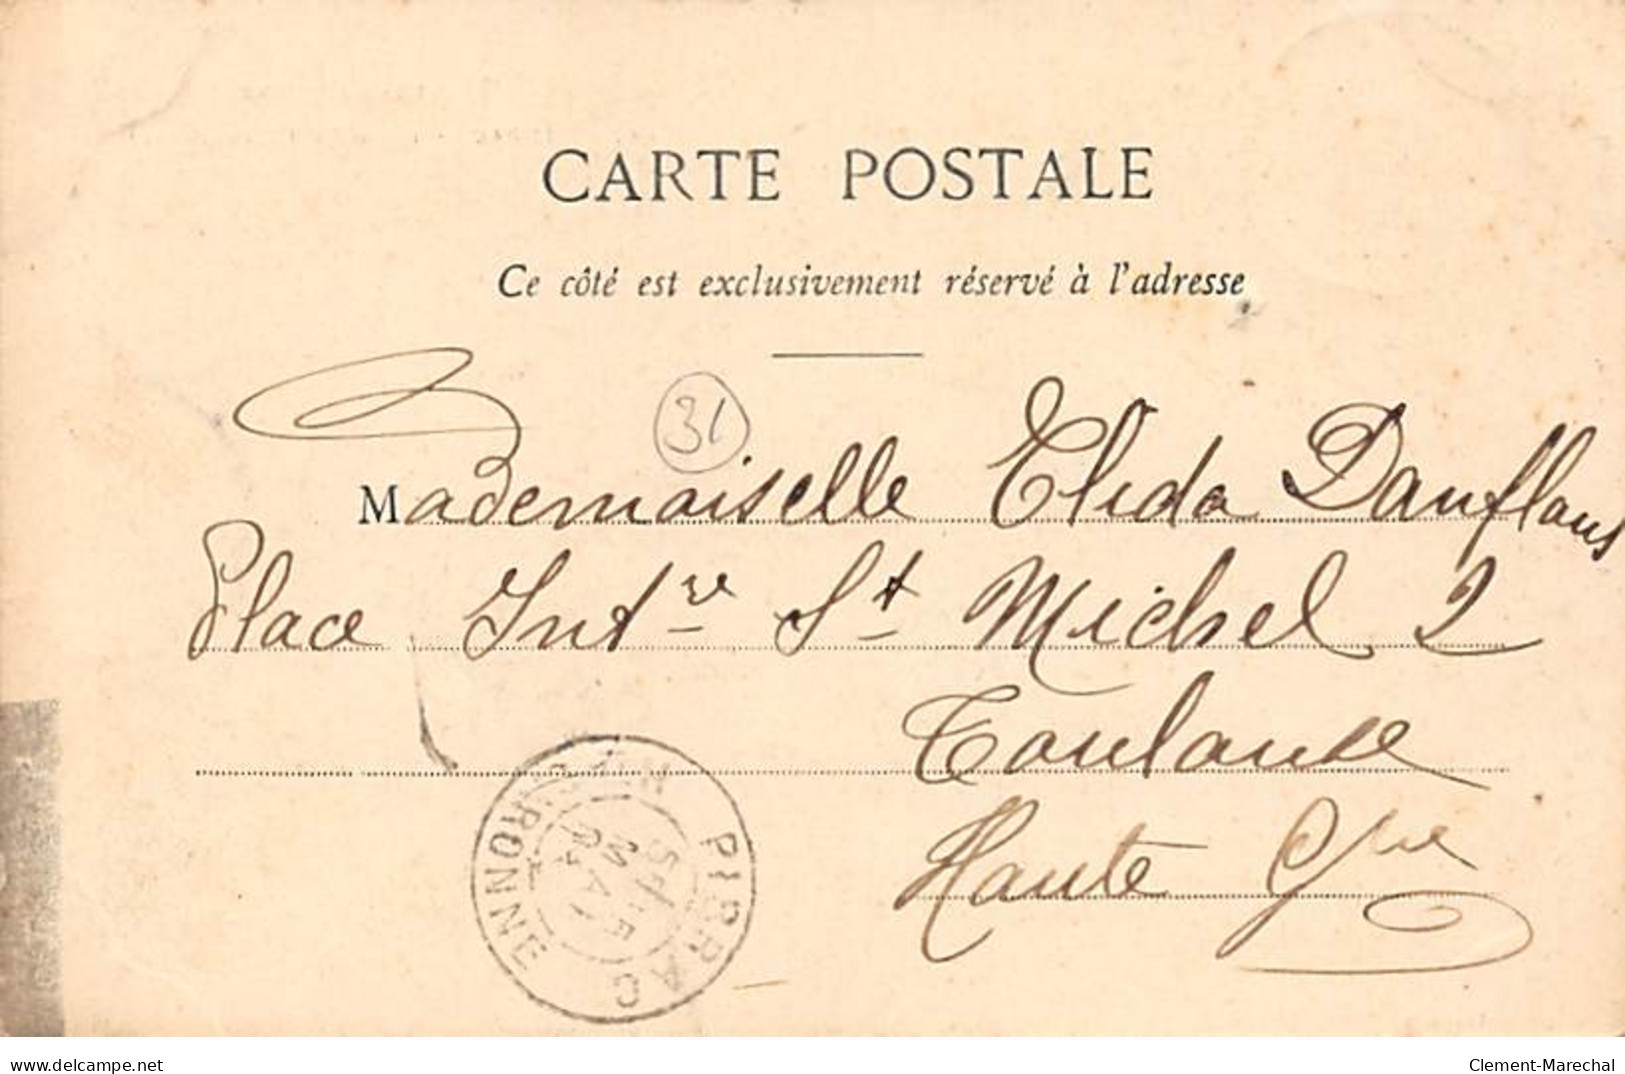 CARTE POSTALE
Ce côté est exclusivement réservé à l'adresse
31
Mademoiselle Elida Dauflous
Place Int^re St Michel 2
Toulouse
Haute G^ne
PIBRAC
Hte GARONNE
MAI
www.delcampe.net
Clement-Marechal